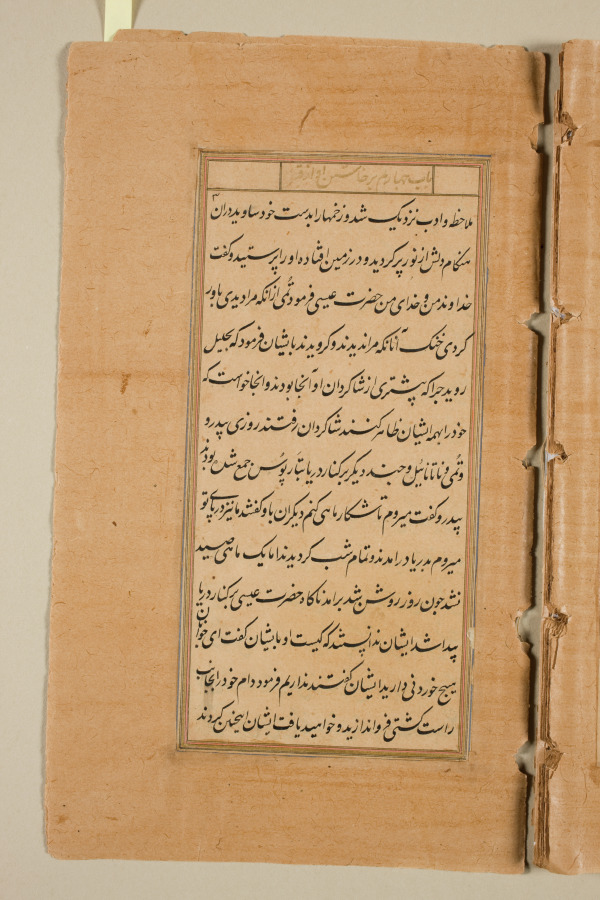 باب چهارم برخاستن او از قبر
ملاحظه و ادب نزدیک شد و زخمها را بدست خود ساوید دران
هنگام دلش از نور پر گردید و در زمین افتاده او را پرستید و گفت
خداوند من و خدای من حضرت عیسی فرمود تُمی ازانکه مرا دیدی باور
کردی خنک آنانکه مرا ندیدند و کرویدند بایشان فرمود که بجلیل
روید چرا که پیشتری از شاکردان او آنجا بودند و انجا خواست که
خود را بهمه ایشان ظاهر کند شاکردان رفتند روزی پیدرو
و تُمی و ناتانائیل و چند دیکر بر کنار دریا تبارپوس جمع شده بودند
پیدرو گفت میروم تا شکار ماهی کنم دیکران باو گفتند ما نیز در پای تو
میروم بدریا درامدند و تمام شب کردیدند اما یک ماهی صید
نشد چون روز روشن شد برامد ناکاه حضرت عیسی بر کنار دریا
پیدا شد ایشان ندانستند که کیست او بایشان گفت ای جوانان
هیچ خوردنی دارید ایشان گفتند نداریم فرمود دام خود را بجانب
راست کشتی فرو اندازید و خواهید یافت ایشان همچنین کردند